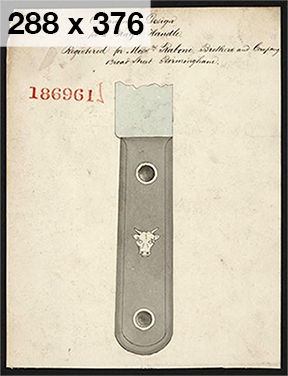 288 x 376
Design
Handle
Registered for Messrs Rabone Brothers and Company
Broad Street Birmingham.
186961